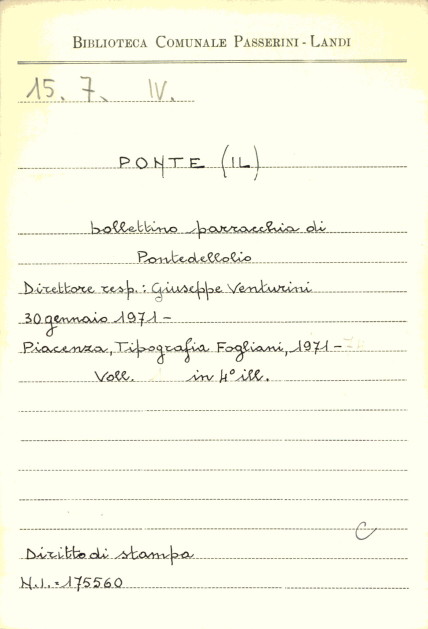 BIBLIOTECA COMUNALE PASSERINI - LANDI
15. 7. IV.
PONTE (IL)
bollettino parracchia di
Pontedellolio
Direttore resp.: Giuseppe Venturini
30 gennaio 1971 -
Piacenza, Tipografia Fogliani, 1971 -
Voll. in 4° ill.
C
Diritto di stampa
N.I. = 175560